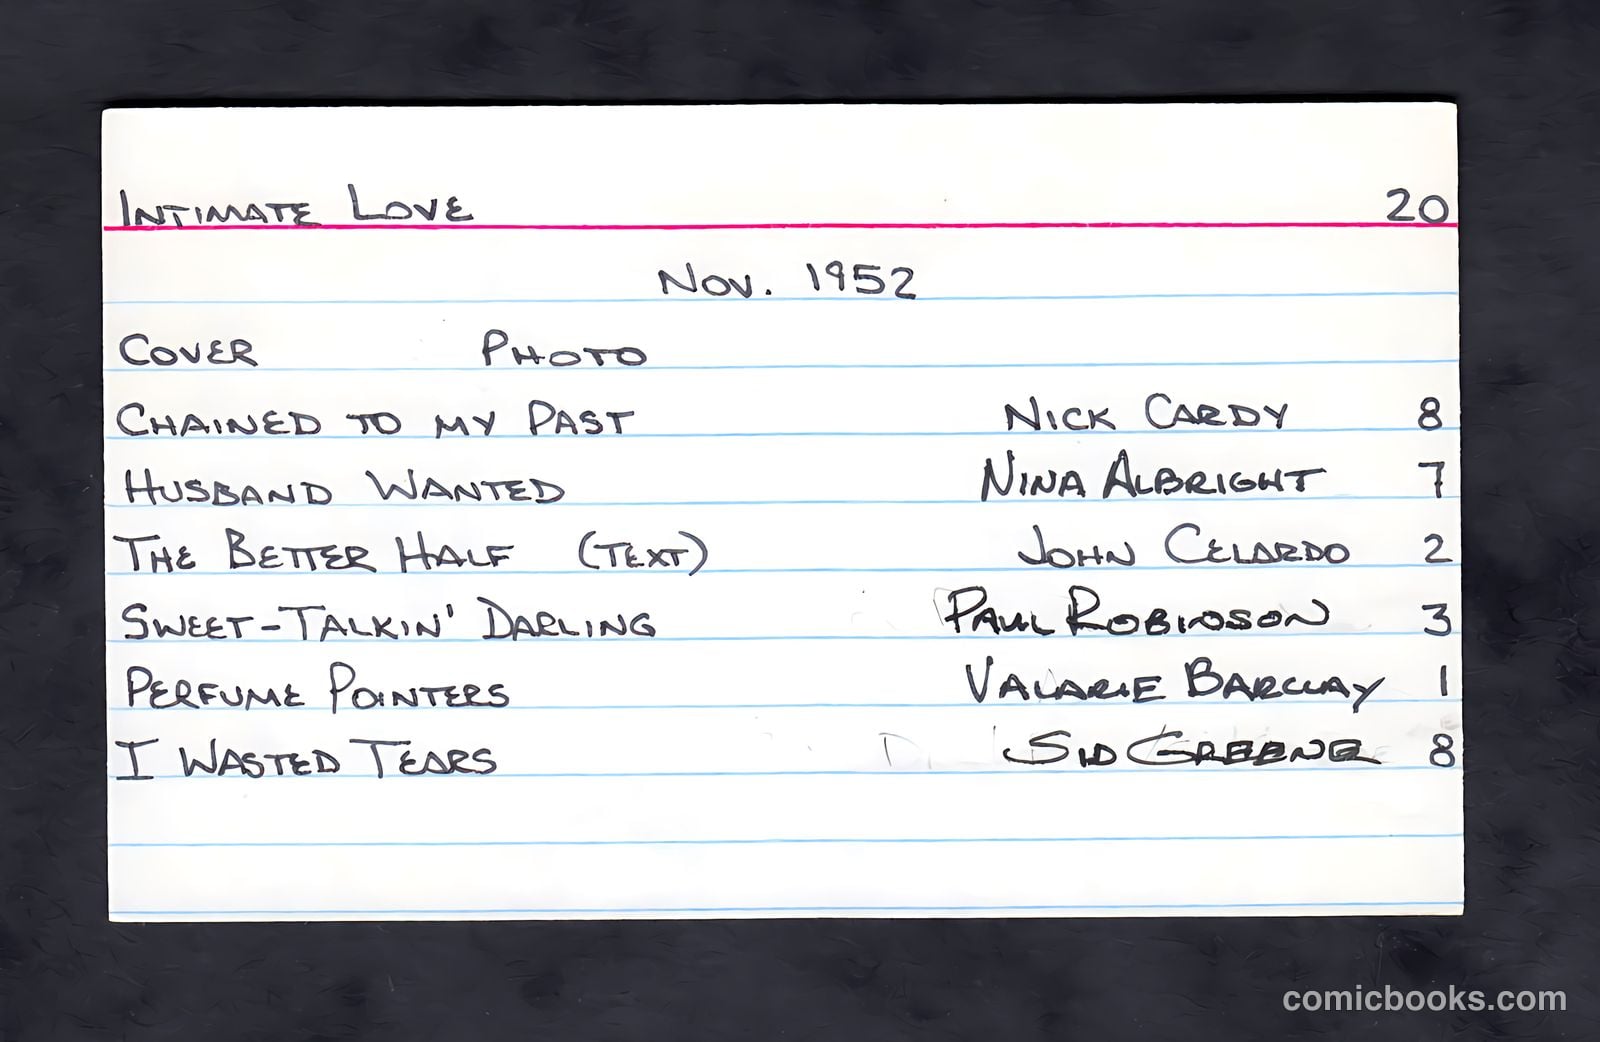 INTIMATE LOVE 20
NOV. 1952
COVER PHOTO
CHAINED TO MY PAST NICK CARDY 8
HUSBAND WANTED NINA ALBRIGHT 7
THE BETTER HALF (TEXT) JOHN CELARDO 2
SWEET-TALKIN' DARLING PAUL ROBINSON 3
PERFUME POINTERS VALARIE BARCLAY 1
I WASTED TEARS SID GREENE 8
comicbooks.com